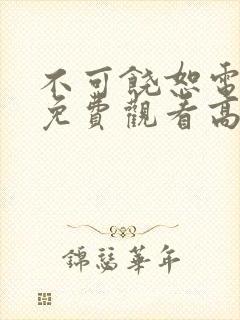 不可饒恕電
免費觀看高
錦瑟華年